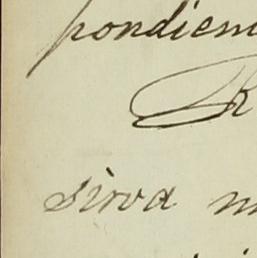 pondiem
R
sirva m